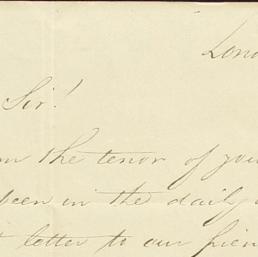 Lond
Sir!
m the tenor of your
been in the daily
letter to our frien